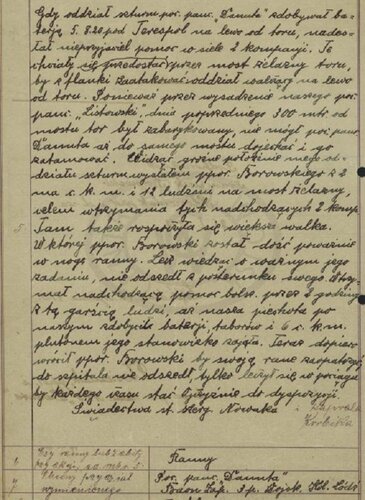 Gdy oddział szturm. poc. panc. "Danuta" zdobywał ba-
terję 5.8.20 pod Terespol na lewo od toru, nades-
łał nieprzyjaciel pomoc w sile 2 kompanji. Te
chciały się przedostać przez most żelazny toru,
by z flanki zaatakować oddział walczący na lewo
od toru. Ponieważ przez wysadzenie naszego poc.
panc. "Listowski", dnia poprzedniego 300 mtr. od
mostu tor był zabarykadowany, nie mógł poc. panc.
"Danuta" aż do samego mostu dojechać i go
zatamować. Widząc groźne położenie mego od-
działu szturm. wydałem ppor. Borowskiego z 2
ma c. k. m. i 12 ludźmi na most żelazny,
celem wtrzymania tych nadchodzących 2 komp.
Tam także rozpoczęła się większa walka.
W której ppor. Borowski został dość poważnie
w nogę ranny. Lecz wiedząc o ważnym jego
zadaniu, nie odszedł z posterunku swego. Wtrzy-
mał nadchodzącą pomoc bolsz. przez 2 godziny
z tą garścią ludzi, aż nasza piechota po
naszym zdobyciu baterji, taborów i 6 c. k. m.
plutonem jego stanowisko zajęła. Teraz dopiero
wrócił ppor. Borowski by swoją ranę zaopatrzyć,
do szpitala nie odszedł, tylko leczył się w pociągu
by każdego czasu stać łącznie do dyspozycji.
Świadectwa st. sierg. Nowaka i
5
6
Ranny
7
Poc. panc. "Danuta"